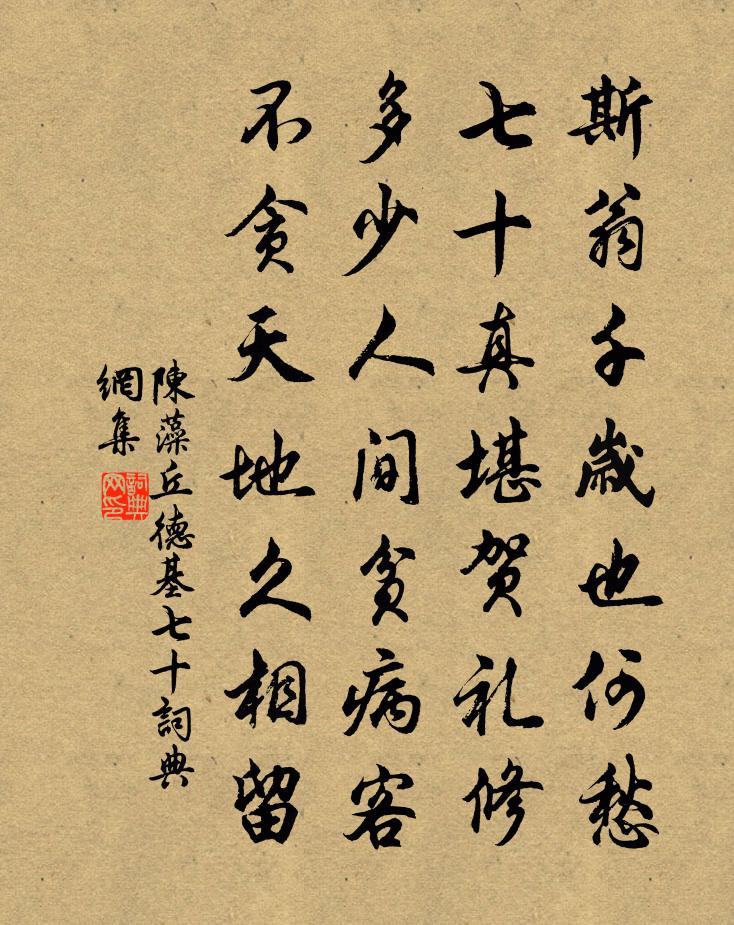 斯翁千歲也何愁
七十真堪贺礼修
多少人间貧病客
不贪天地久相留
陳藻丘德基七十詞典
網集
詞典網印